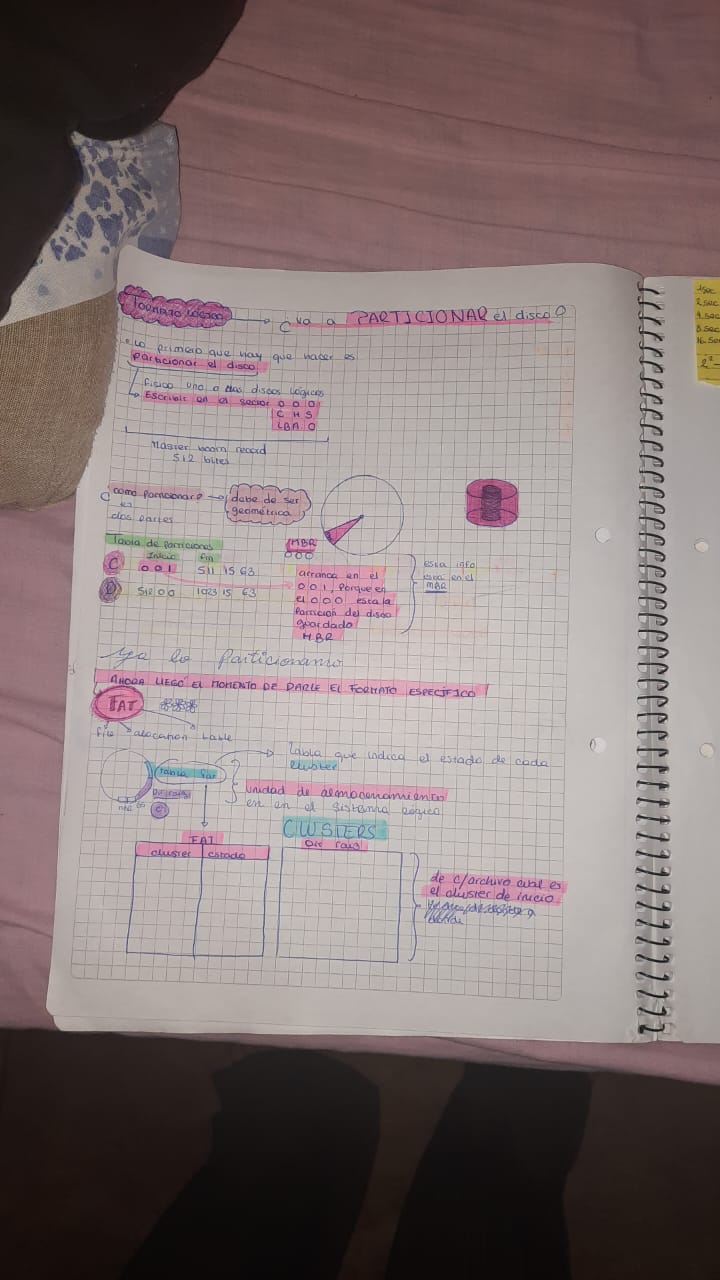 FORMATO LÓGICO → va a PARTICIONAR el disco
• Lo primero que hay que hacer es
particionar el disco
físico uno o más discos lógicos
→ Escribir en el sector 0 0 0
C H S
LBA 0
Master boom record
512 bites
como particionar? → debe de ser
geométrica
en
dos partes
Tabla de Particiones
Inicio Fin
C 0 0 1 511 15 63
D 512 0 0 1023 15 63
MBR
000
arranca en el
0 0 1, porque en
el 0 0 0 esta la
Partición del disco
guardado
MBR
esta info
esta en el
MBR
Ya lo Particionamo
AHORA LLEGÓ EL MOMENTO DE DARLE EL FORMATO ESPECÍFICO
FAT
file alocation table
→ Tabla que indica el estado de cada
cluster
Tabla Fat
C
unidad de almacenamiento
en en el sistema lógico
CLUSTERS
FAT
cluster estado
Dir raiz
de c/archivo cual es
el cluster de inicio
1 sec
2 sec
4 sec
8 sec
16 sec